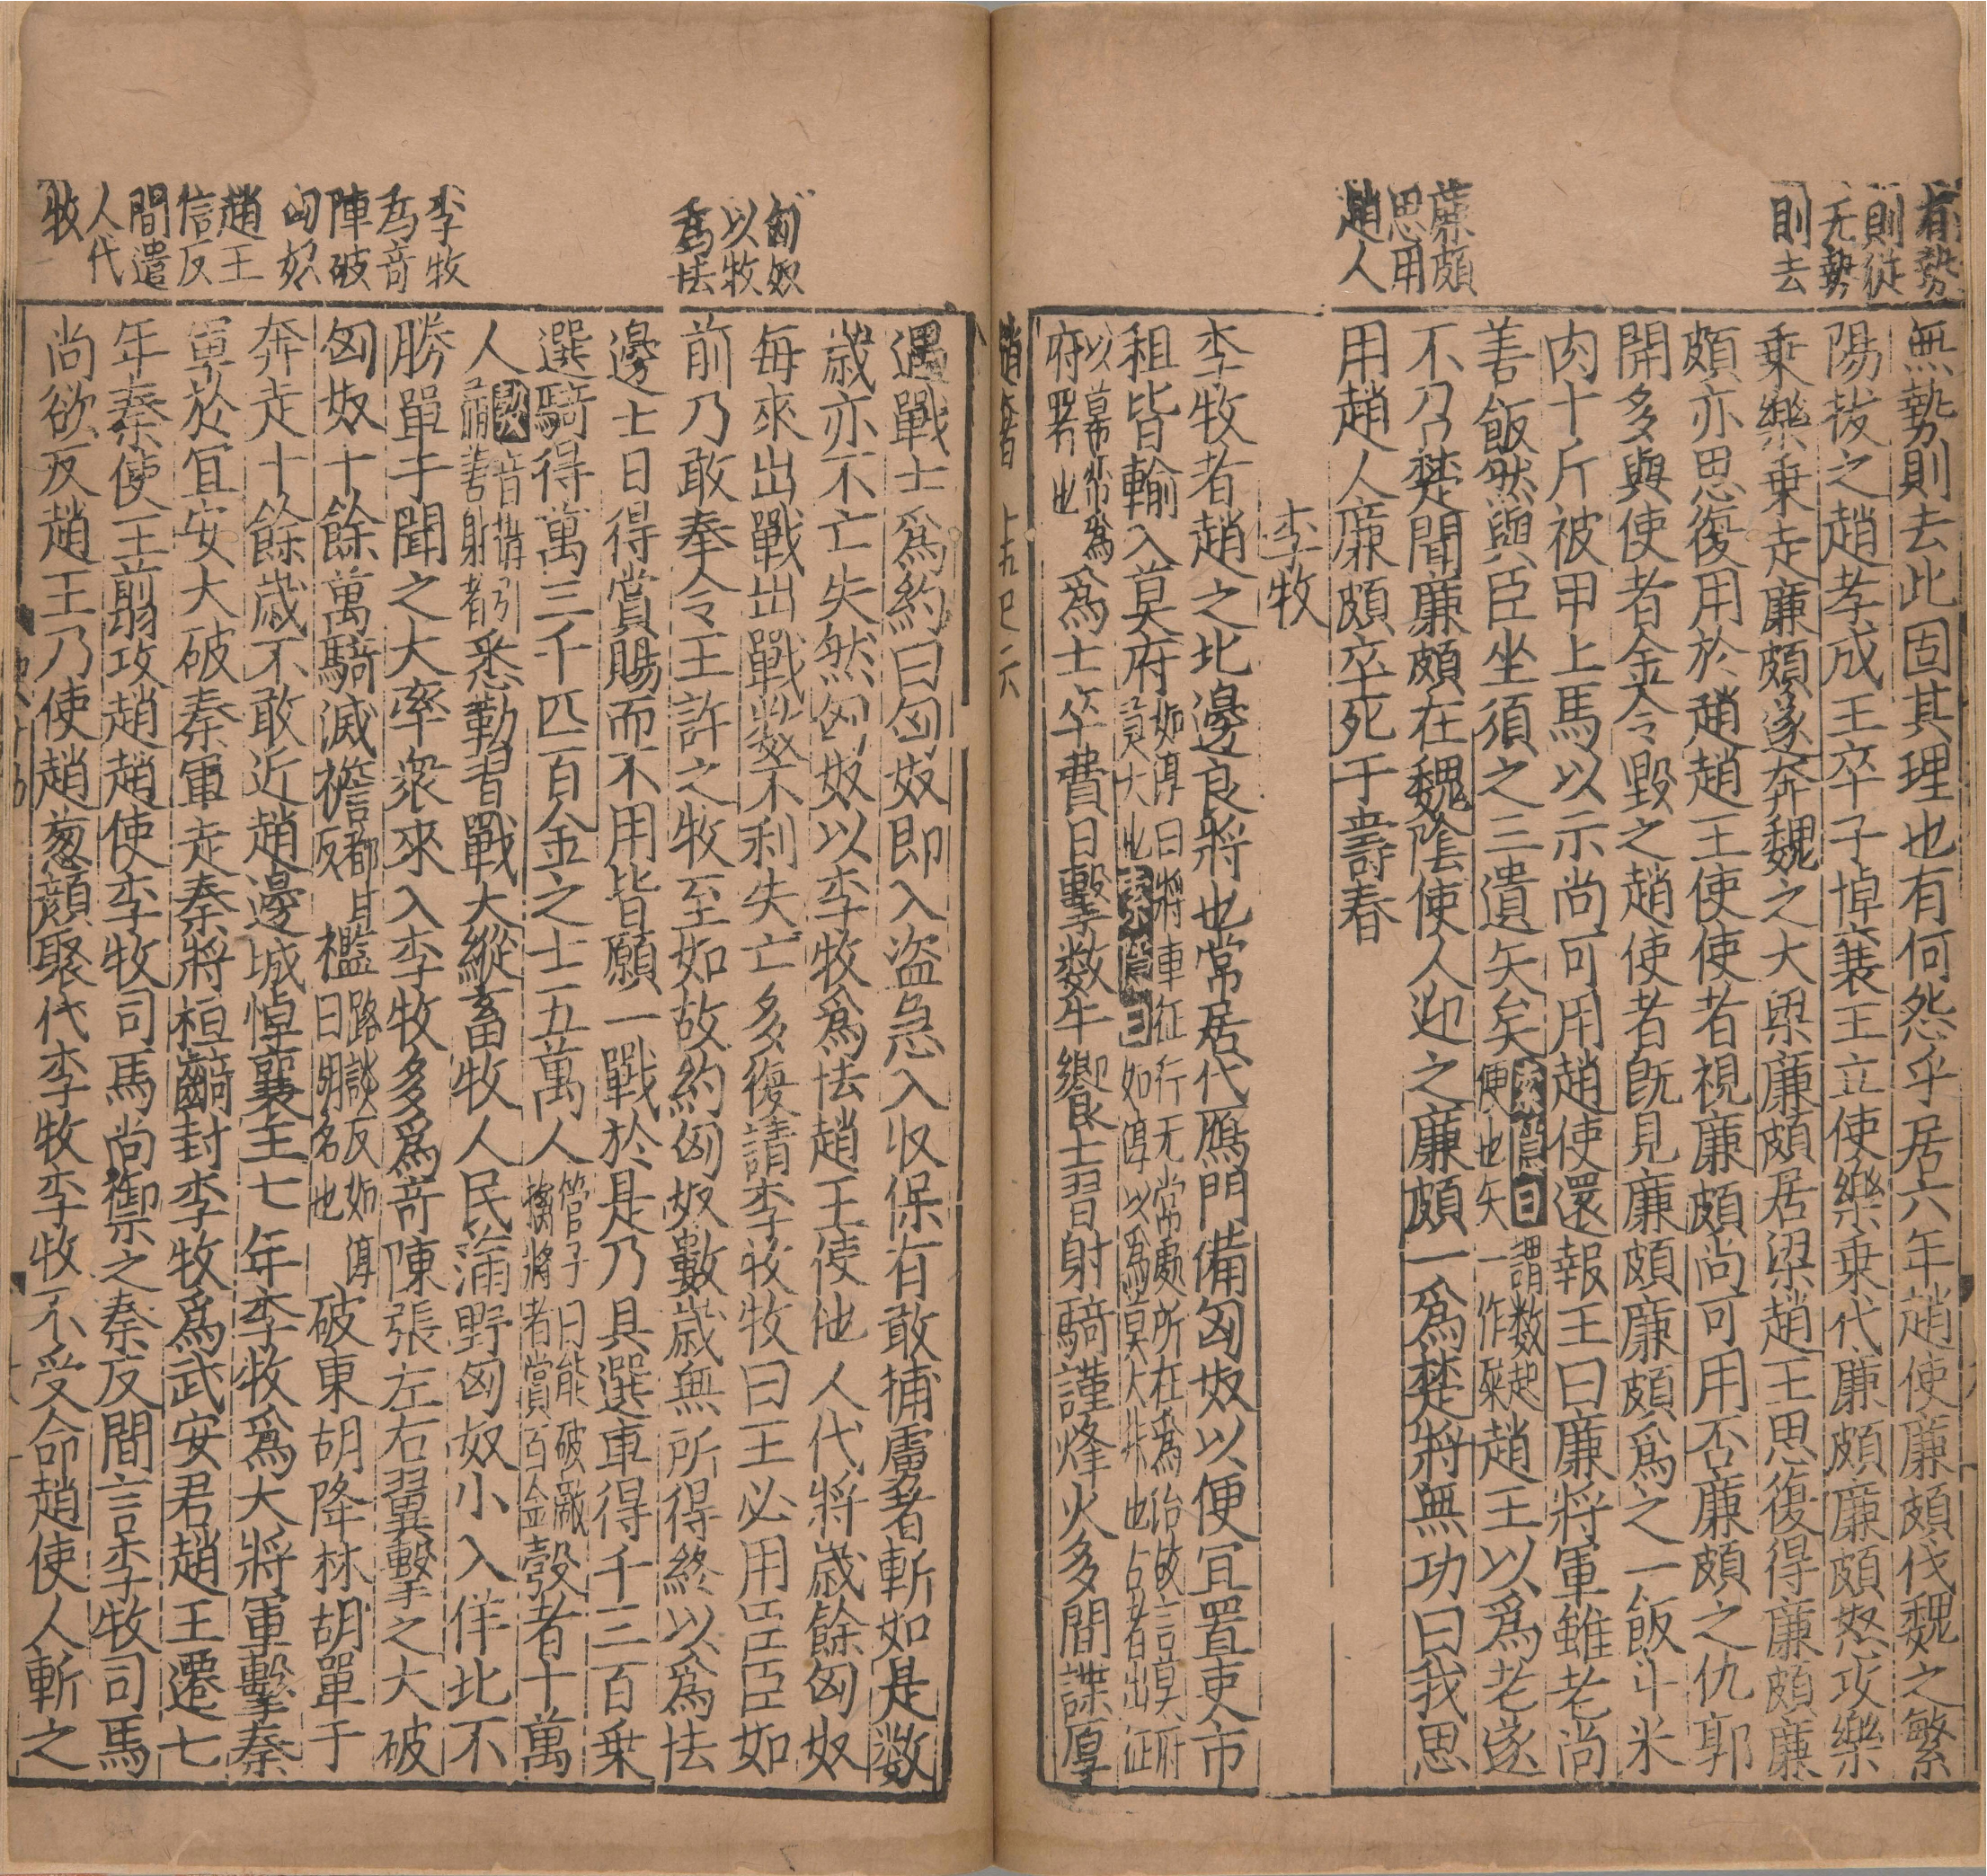 有勢
則從
无勢
則去
廉頗
思用
趙人
無勢則去此固其理也有何怨乎居六年趙使廉頗伐魏之繁
陽拔之趙孝成王卒子悼襄王立使樂乗代廉頗廉頗怒攻樂
乗樂乗走廉頗遂奔魏之大梁廉頗居梁趙王思復得廉頗廉
頗亦思復用於趙趙王使使者視廉頗尚可用否廉頗之仇郭
開多與使者金令毀之趙使者旣見廉頗廉頗爲之一飯斗米
肉十斤被甲上馬以示尚可用趙使還報王曰廉將軍雖老尚
善飯然與臣坐須之三遺矢矣索隱曰謂数起便也矢一作屎趙王以爲老遂
不召楚聞廉頗在魏陰使人迎之廉頗一爲楚將無功曰我思
用趙人廉頗卒死于壽春
李牧
李牧者趙之北邊良將也常居代鴈門備匈奴以便宜置吏市
租皆輸入莫府如淳曰將車征行无常處所在爲治故言莫府莫大也索隱曰如淳以爲莫大非也占者出征
以幕帟爲府署也爲士卒費日擊数牛饗士習射騎謹烽火多間諜厚
匈奴
以牧
爲怯
李牧
爲竒
陣破
匈奴
趙王
信反
間遣
人代
牧
遇戰士爲約曰匈奴即入盗急入收保有敢捕虜者斬如是数
歳亦不亡失然匈奴以李牧爲怯趙王使他人代將歳餘匈奴
每來出戰出戰数不利失亡多復請李牧牧曰王必用臣臣如
前乃敢奉令王許之牧至如故約匈奴數歳無所得終以爲怯
邊士日得賞賜而不用皆願一戰於是乃具選車得千三百乗
選騎得萬三千匹百金之士五萬人管子曰能破敵擒將者賞百金彀者十萬
人索隱音彀引滿善射者悉勒習戰大縱畜牧人民滿野匈奴小入佯北不
勝單于聞之大率衆來入李牧多爲竒陳張左右翼擊之大破
匈奴十餘萬騎滅襜都甘反襤路談反如淳曰胡名也破東胡降林胡單于
奔走十餘歳不敢近趙邊城悼襄王七年李牧爲大將軍擊秦
軍於宜安大破秦軍走秦將桓齮封李牧爲武安君趙王遷七
年秦使王翦攻趙趙使李牧司馬尚禦之秦反間言李牧司馬
尚欲反趙王乃使趙葱顔聚代李牧李牧不受命趙使人斬之